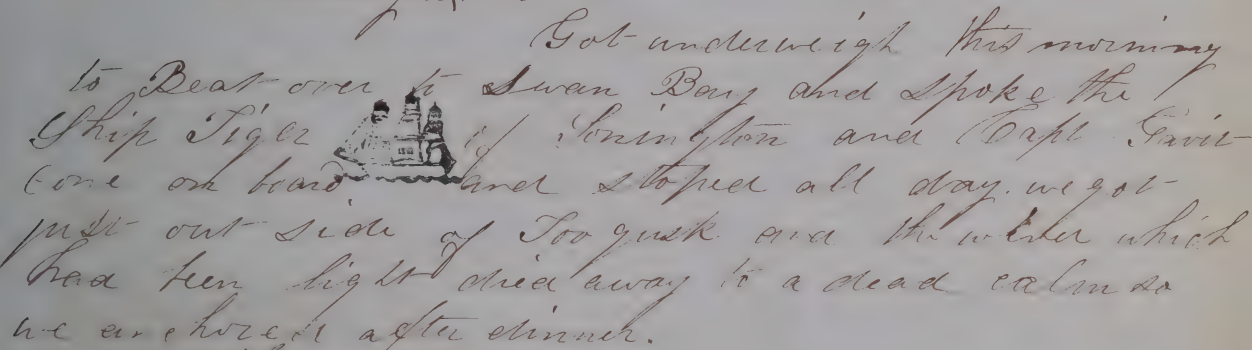 Got underweigh this morning
to Beat over to Swan Bay and spoke the
Ship Tiger of Stonington and Capt
Come on board and stoped all day. we got
just out side of and the wind which
had been light died away to a dead calm so
we anchored after dinner.